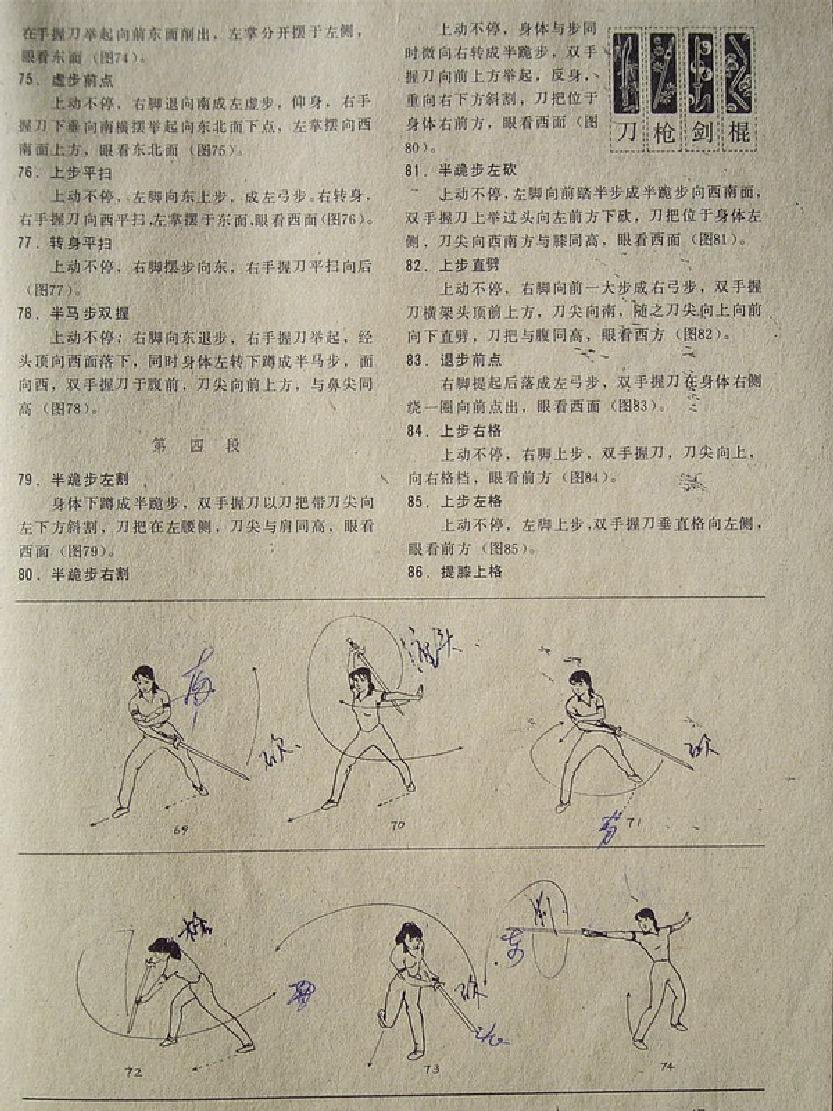 在手握刀举起向前东面削出，左掌分开摆于左侧，
眼看东面（图74）。
75．虚步前点
上动不停，右脚退向南成左虚步，仰身，右手
握刀下垂向南横摆举起向东北面下点，左掌摆向西
南面上方，眼看东北面（图75）。
76．上步平扫
上动不停，左脚向东上步，成左弓步。右转身，
右手握刀向西平扫，左掌摆于东面，眼看西面（图76）。
77．转身平扫
上动不停，右脚摆步向东，右手握刀平扫向后
（图77）。
78．半马步双握
上动不停，右脚向东退步，右手握刀举起，经
头顶向西面落下，同时身体左转下蹲成半马步，面
向西，双手握刀于腹前，刀尖向前上方，与鼻尖同
高（图78）。
第四段
79．半跪步左割
身体下蹲成半跪步，双手握刀以刀把带刀尖向
左下方斜割，刀把在左腰侧，刀尖与肩同高，眼看
西面（图79）。
80．半跪步右割
上动不停，身体与步同
时微向右转成半跪步，双手
握刀向前上方举起，反身、
重向右下方斜割，刀把位于
身体右前方，眼看西面（图
80）。
刀 枪 剑 棍
81．半跪步左砍
上动不停，左脚向前踏半步成半跪步向西南面，
双手握刀上举过头向左前方下砍，刀把位于身体左
侧，刀尖向西南方与膝同高，眼看西面（图81）。
82．上步直劈
上动不停，右脚向前一大步成右弓步，双手握
刀横架头顶前上方，刀尖向南，随之刀尖向上向前
向下直劈，刀把与腹同高，眼看西方（图82）。
83．退步前点
右脚提起后落成左弓步，双手握刀在身体右侧
绕一圈向前点出，眼看西面（图83）。
84．上步右格
上动不停，右脚上步，双手握刀，刀尖向上，
向右格档，眼看前方（图84）。
85．上步左格
上动不停，左脚上步，双手握刀垂直格向左侧，
眼看前方（图85）。
86．提膝上格
南
砍
69
70
砍
71
格
72
砍
73
削
东
74